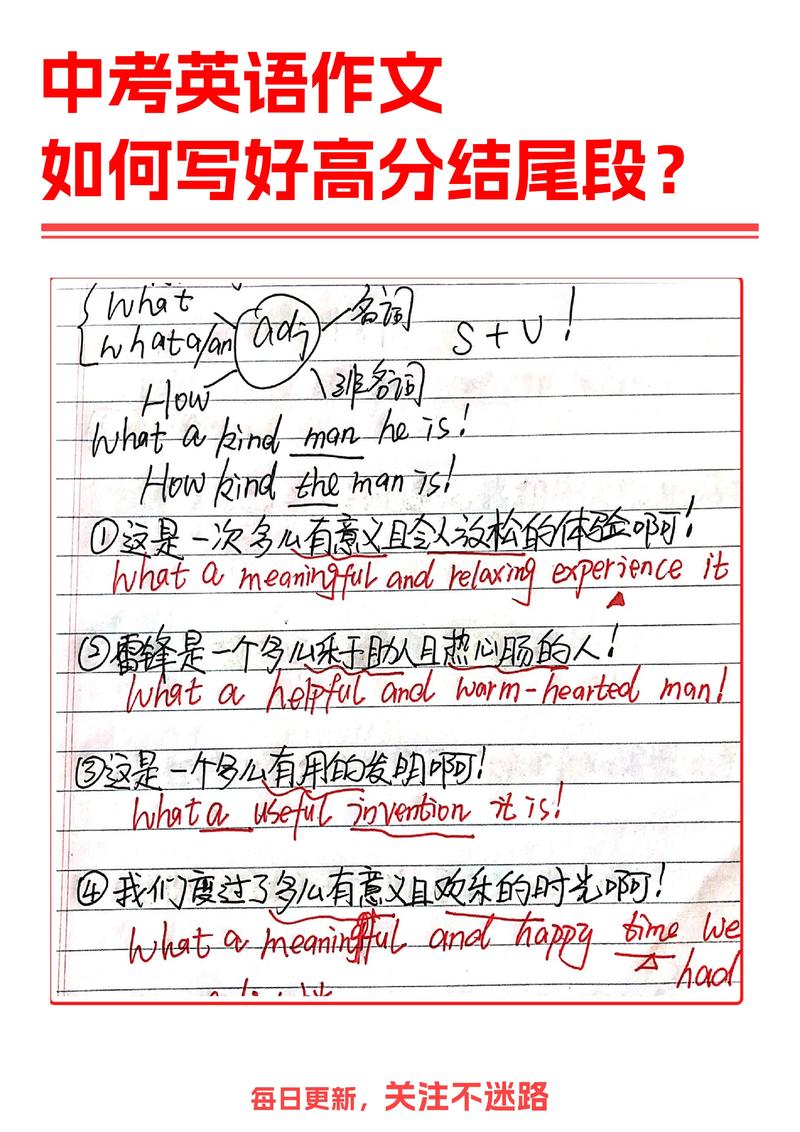 中考英语作文
如何写好高分结尾段？
what
what a/an adj 名词 S + V !
How 非名词
What a kind man he is!
How kind the man is!
①这是一次多么有意义且令人放松的体验啊!
What a meaningful and relaxing experience it
②雷锋是一个多么乐于助人且热心肠的人!
What a helpful and warm-hearted man!
③这是一个多么有用的发明啊!
What a useful invention it is!
④我们度过了多么有意义且欢乐的时光啊!
What a meaningful and happy time we
had
每日更新，关注不迷路